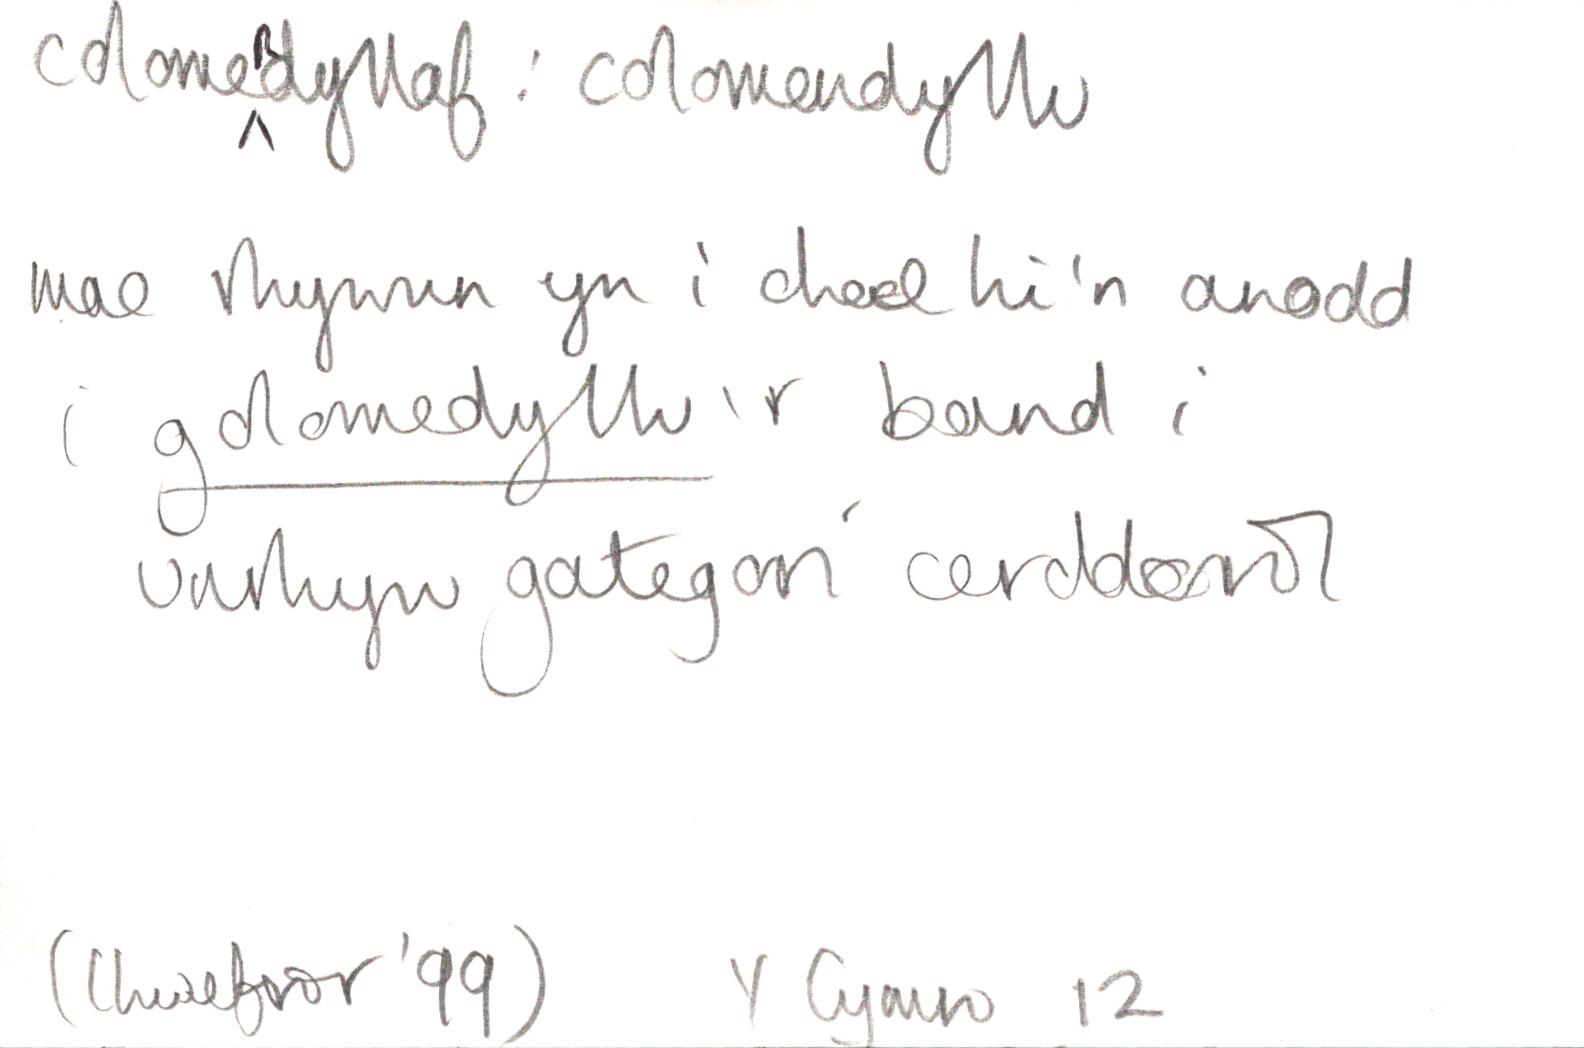 colomendyllaf : colomendyllu
mae rhywun yn i chael hi'n anodd
i golomedyllu'r band i
unrhyw gategori cerddorol
(Chwefror '99) Y Cymro 12